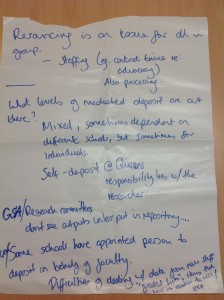 Resourcing is an issue for all in
group.
- Staffing (eg. contact time re-
advocacy)
Also processing.
What levels of mediated deposit are out
there?
Mixed, sometimes dependent on
different schools, but sometimes for
individuals.
Self-deposit @ Queens
responsibility lies with the
researcher
GSA/Research committees
don't see outputs unless put in repository...
Some schools have appointed person to
deposit on behalf of faculty.
Difficulties of dealing w/ data from new staff